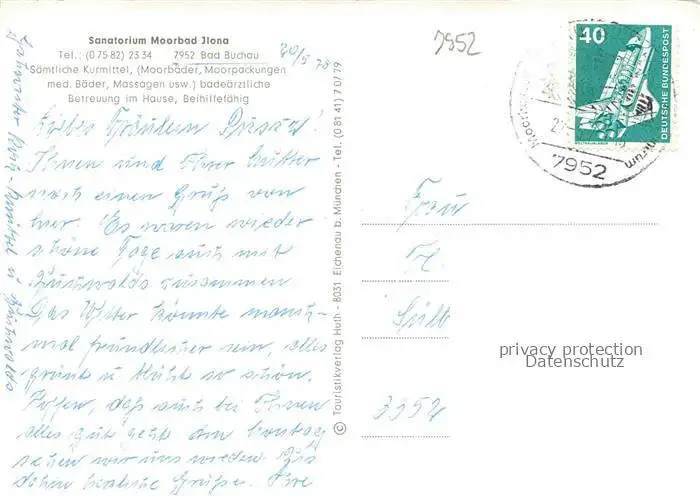 Sanatorium Moorbad Jlona
Tel.: (0 75 82) 23 34 7952 Bad Buchau
Sämtliche Kurmittel, (Moorbäder, Moorpackungen
med. Bäder, Massagen usw.) badeärztliche
Betreuung im Hause, Beihilfefähig
20/5 78
7952
40
DEUTSCHE BUNDESPOST
7952
Liebes Fräulein
Ihnen und Ihrer Mutter
noch einen Gruß von
hier. Es waren wieder
schöne Tage auch mit
Grünwalds zusammen.
Das Wetter könnte manch-
mal freundlicher sein, alles
grünt u. blüht so schön.
Hoffen, daß auch bei Ihnen
alles gut geht. Am Montag
sehen wir uns wieder. Bis
dahin herzliche Grüße. Ihre
© Touristikverlag Huth - 8031 Eichenau b. München - Tel. (0 81 41) 7 0/79
Frau
privacy protection
Datenschutz